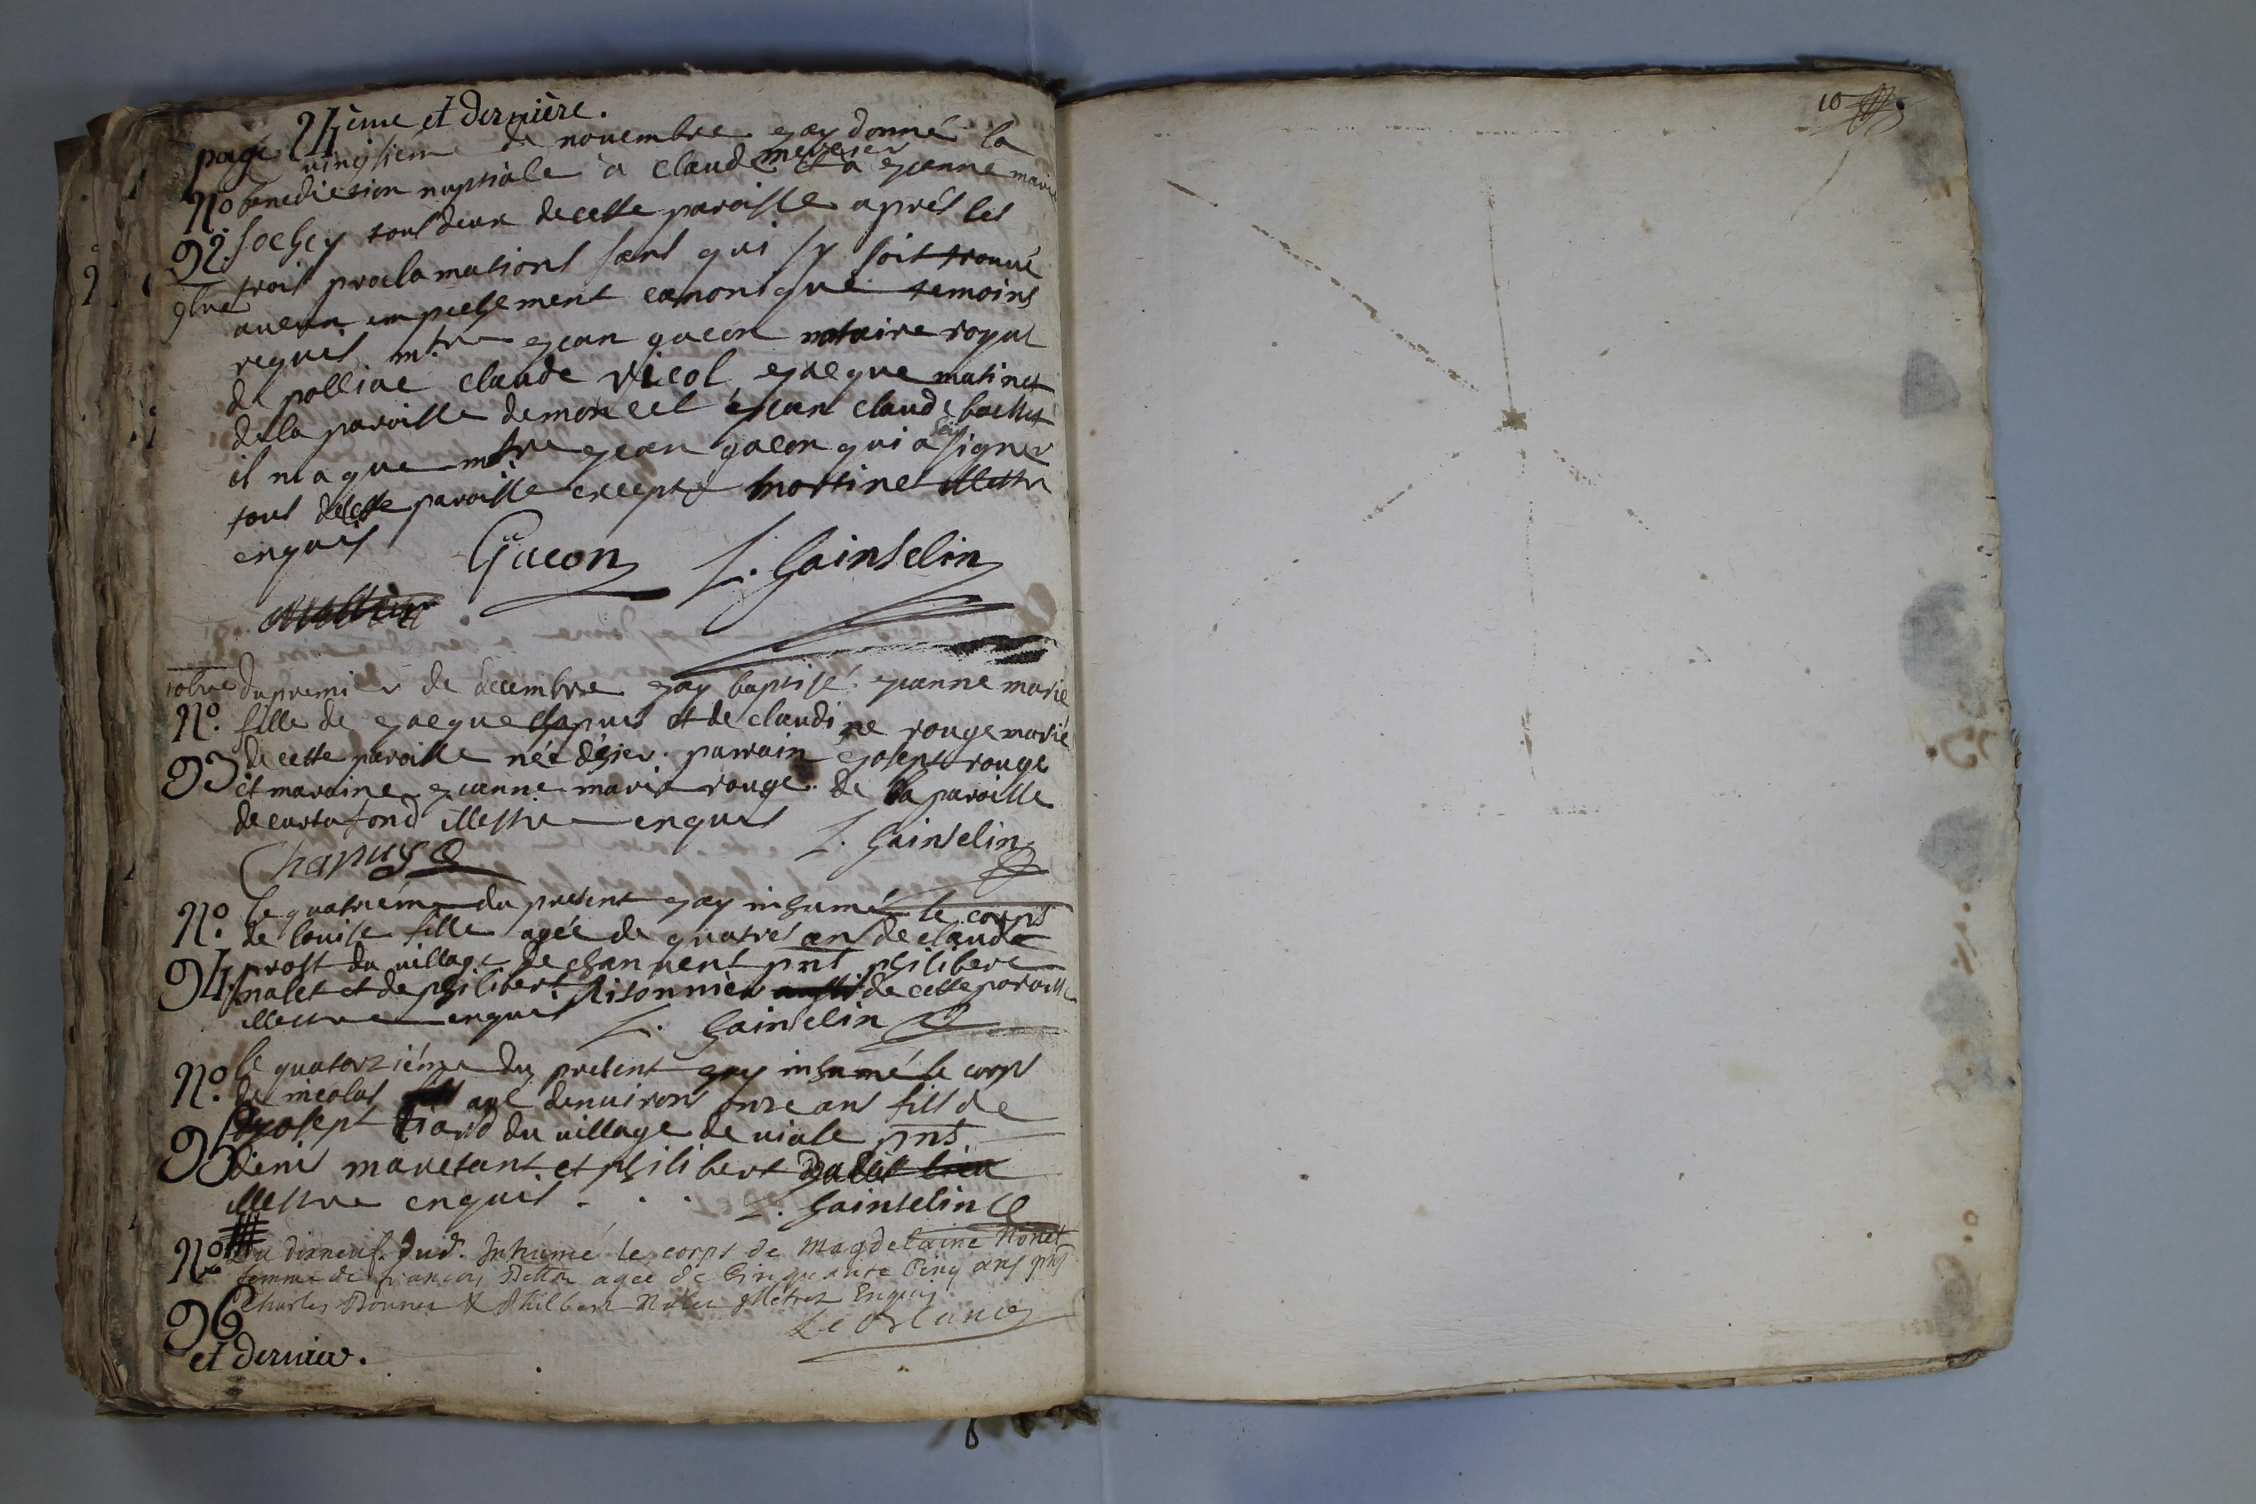 page 24ème et dernière.
vingtiem de novembre jay donné la
N.o benediction nuptiale a claude mercier et a jeanne marie
92. sochey tous deux de cette paroisse aprés les
9bre trois proclamations sans qui sy soit trouvé
aucun empechement canonique temoins
requis m.tre jean gacon notaire royal
de polliac claude nicol jacque matinet
de la paroisse de moncel jean claude bachet
il nia que m.tre jean gacon qui a sçu signer
tous de cette paroisse excepté martinet illettre
enquis
Gacon L. Gainselin
10bre du premier de decembre jay baptisé jeanne marie
N.o fille de jacque chapuis et de claudine rouge marié
93 de cette paroisse née d'hier. parrain joseph rouge
et maraine jeanne marie rouge de la paroisse
de curtafond illettre enquis L. Gainselin
Chapuys
N.o le quatriéme du present jay inhumé le corps
de louise fille agée de quatres ans de claude
94. prost du village de channent pnt philibert
nalet et de philibert de cette paroisse
illettre enquis L. Gainselin
N.o le quatorziéme du present jay inhumé le corps
de nicolas agé denvirons onze ans fils de
95 joseph du village de viale pnt
denis maretant et philibert
illettre enquis L. Gainselin
N.o Du dixneuf dud. Inhumé le corps de Magdelaine Nonet
femme de francois agee de Cinquante Cinq ans pnt
96 Charles Bonnet & Philbert Nalet illetrez Enquis
Le Blanc
et dernier.
10